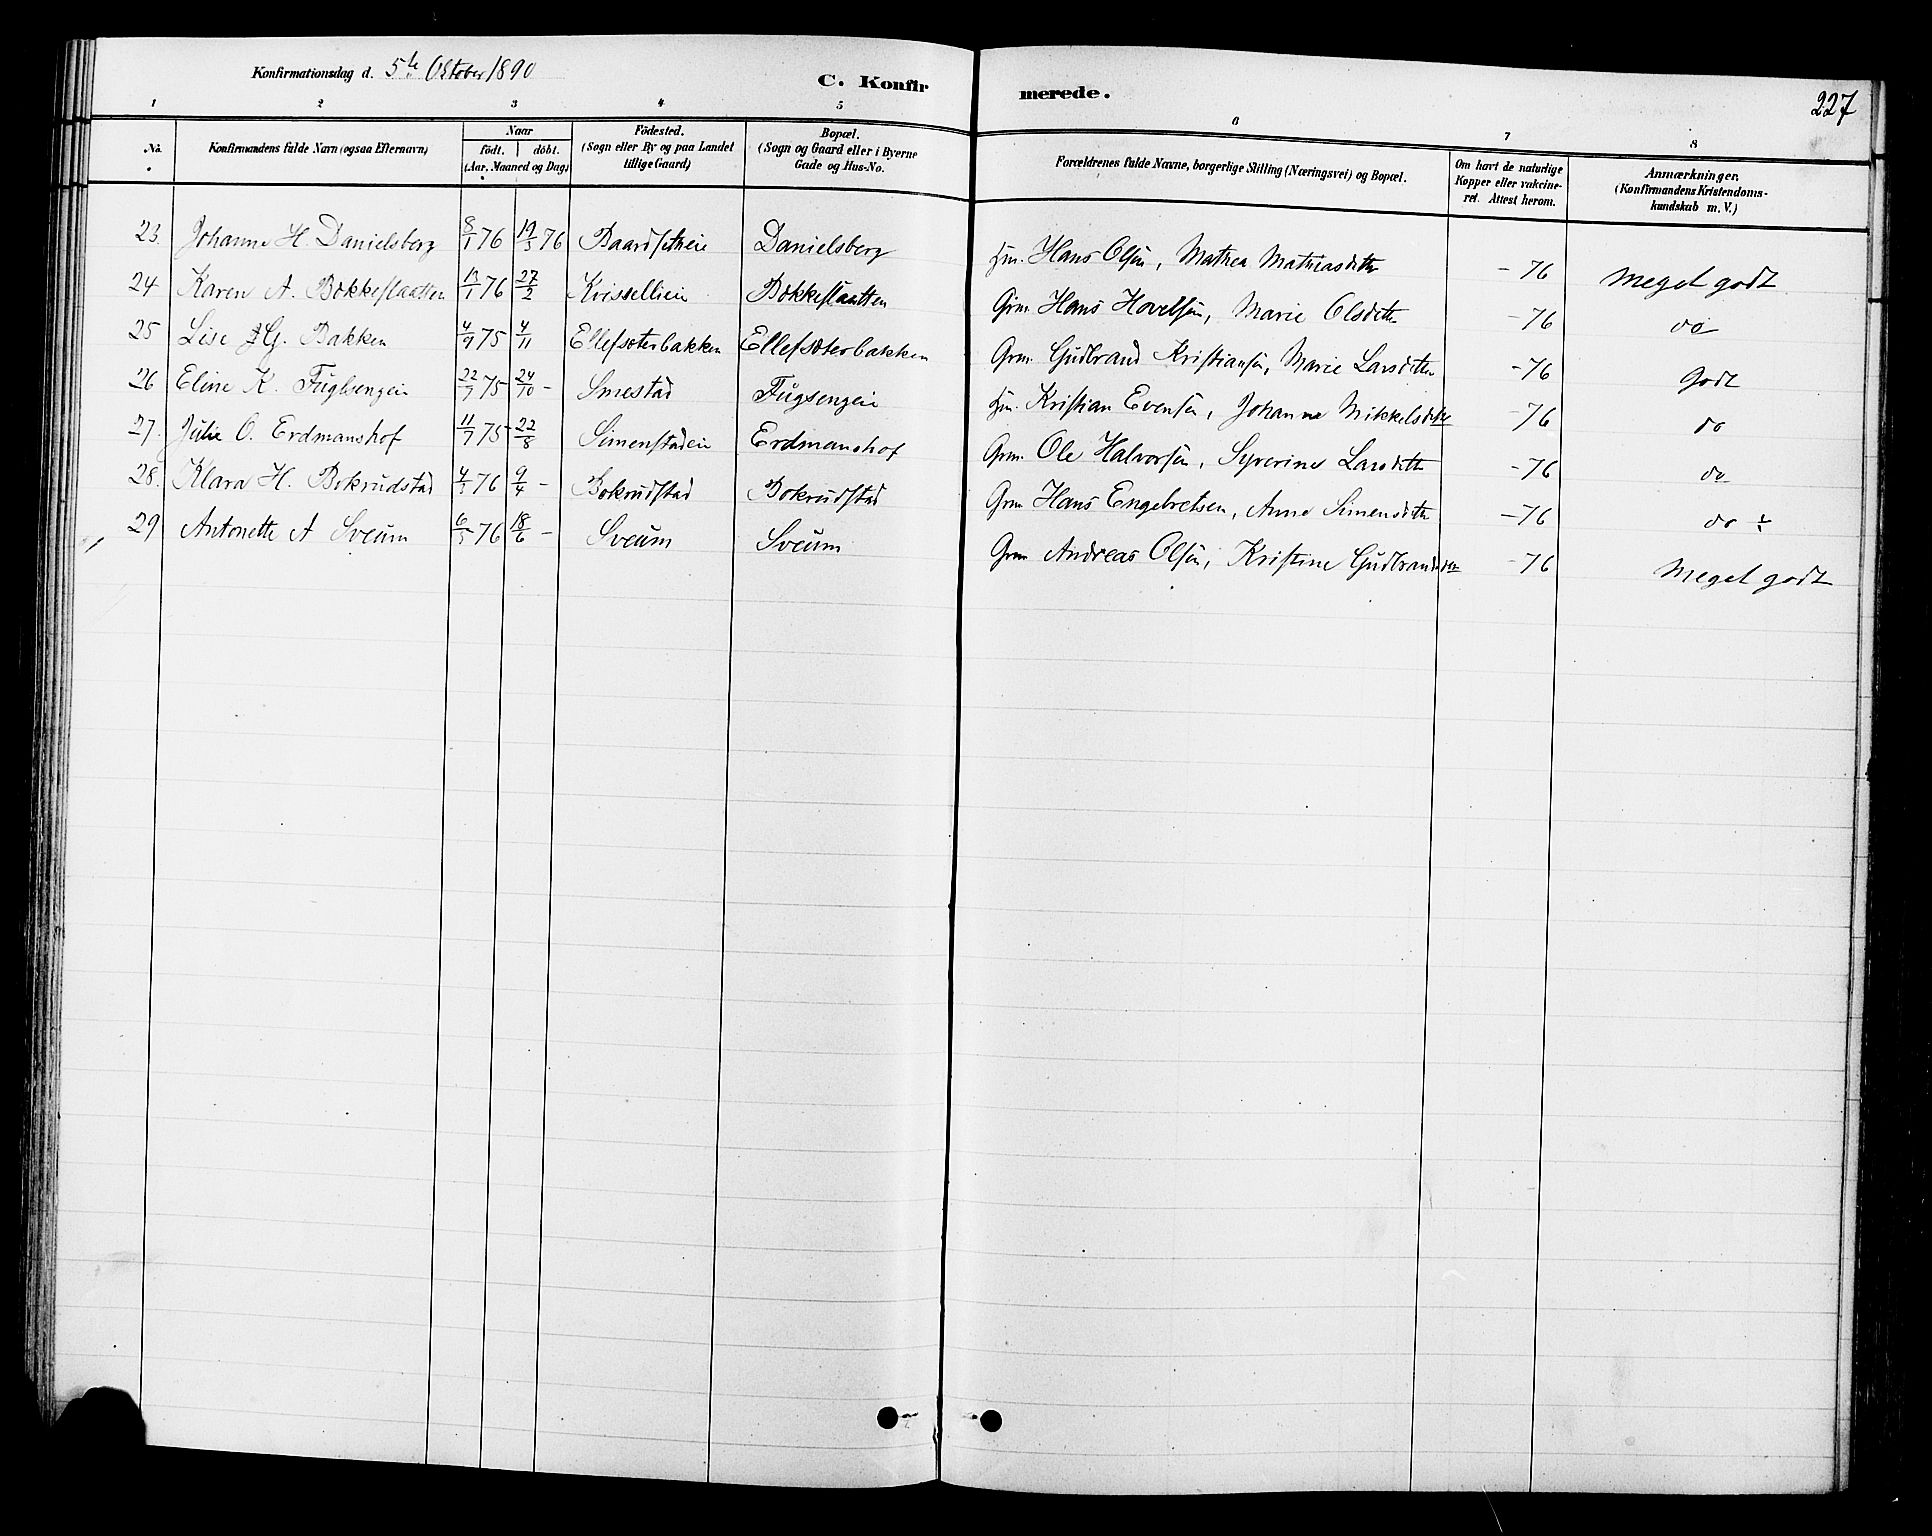 Konfirmationsdag d. 5te October 1890
C. Konfirmerede.
227
1 2 3 4 5 6 7 8
No. Konfirmandens fulde Navn (ogsaa Efternavn) Naar födt. döbt. (Aar, Maaned og Dag) Födested. (Sogn eller By og paa Landet tillige Gaard) Bopæl. (Sogn og Gaard eller i Byerne Gade og Hus-No. Forældrenes fulde Navne, borgerlige Stilling (Næringsvei) og Bopæl. Om havt de naturlige Kopper eller vakcineret. Attest herom. Anmærkninger. (Konfirmandens Kristendomskundskab m. V.)
23. Johanne H. Danielsberg 8/1 76 19/3 76 Baardsetheie Danielsberg Hans Olsen, Mathea Mathiasdtr - 76 Meget godt
24 Karen A. Bökkeslaatten 76 27/2 Kvissellieie Bökkeslaatten Grm. Hans Hovelsen, Marie Olsdttr - 76 do
25 Lise G. Bakken 4/9 75 4/11 Ellefsæterbakken Ellefsæterbakken Grm. Gudbrand Kristiansen, Marie Larsdtter - 76 Godt
26 Eline K. Fuglsengeie 22/7 75 24/10 - Smestad Fugsengeie Kristian Evensen, Johanne Mikkelsdtr - 76 do
27. Julie O. Erdmanshof 11/7 75 - 22/8 Simenstadeie Erdmanshof Grm. Ole Halvorsen, Syverine Larsdttr - 76 do
28. Klara H. Bokrudstad 4/3 76 9/4 - Bokrudstad Bokrudstad Grm Hans Engebretsen, Anne Simensdttr - 76 do ÷
29 Antonette A Sveum 6/5 76 18/6 - Sveum Sveum Grm Andreas Olsen, Kristine Gudbrandsdtr - 76 Meget godt